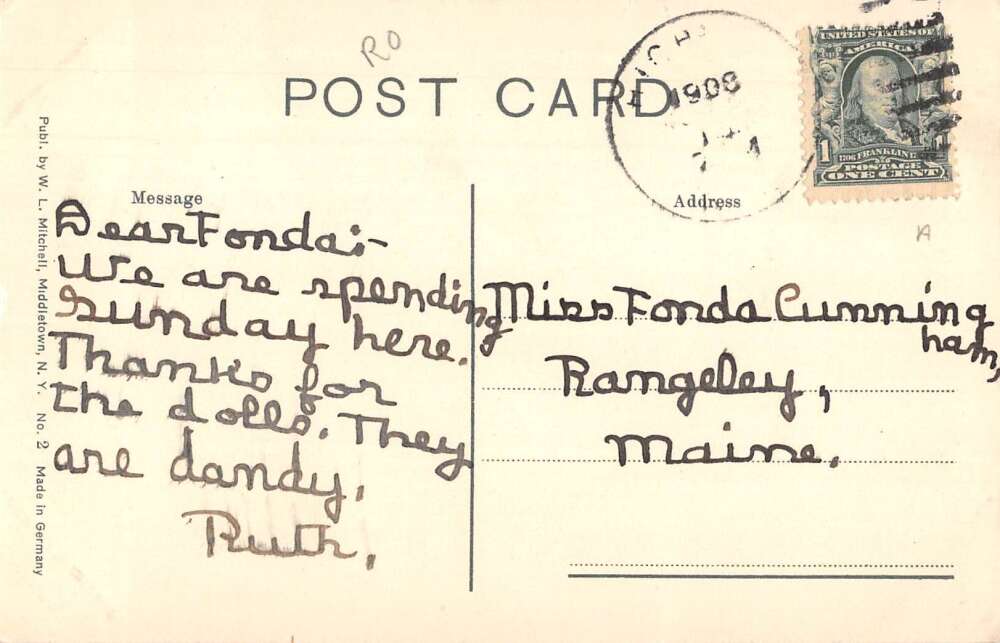 RO
POST CARD
1908
UNITED STATES OF
AMERICA
1706 FRANKLIN
POSTAGE
1 ONE CENT 1
Message
Address
Dear Fonda:-
We are spending
Sunday here.
Thanks for
the dolls. They
are dandy.
Ruth.
Miss Fonda Cunning
ham,
Rangeley,
Maine.
Publ. by W. L. Mitchell, Middletown, N. Y. No. 2 Made in Germany